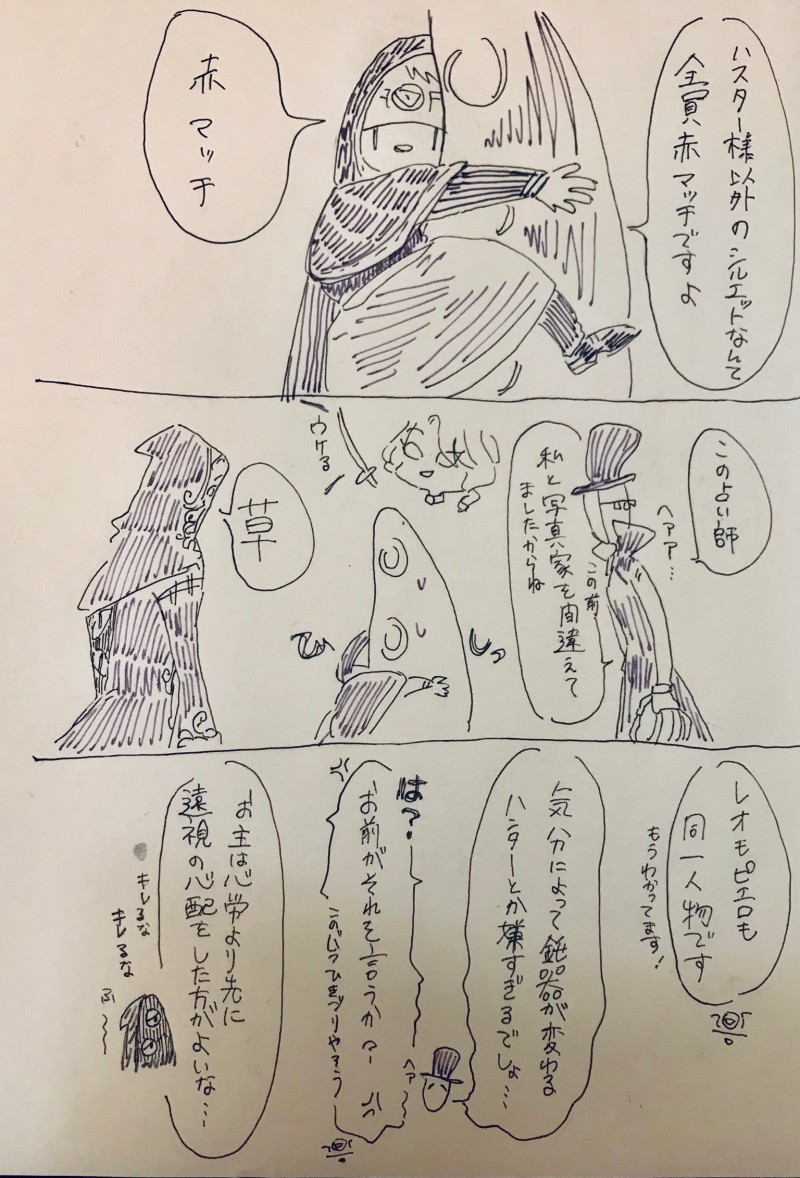 ハスター様以外のシルエットなんて
全員赤マッチですよ
赤
マッチ
このよい師
ヘアア…
この前、
私と写真家を間違えて
ましたからね
ウケる
草
レオもピエロも
同一人物です
もうわかってます!
気分によって鈍器が変わる
ハンターとか嫌すぎるでしょ…
ヘア
は?
お前がそれを言うか?
お主は心労より先に
遠視の心配をした方がよいな…
キレるな
キレるな
ふ〜〜